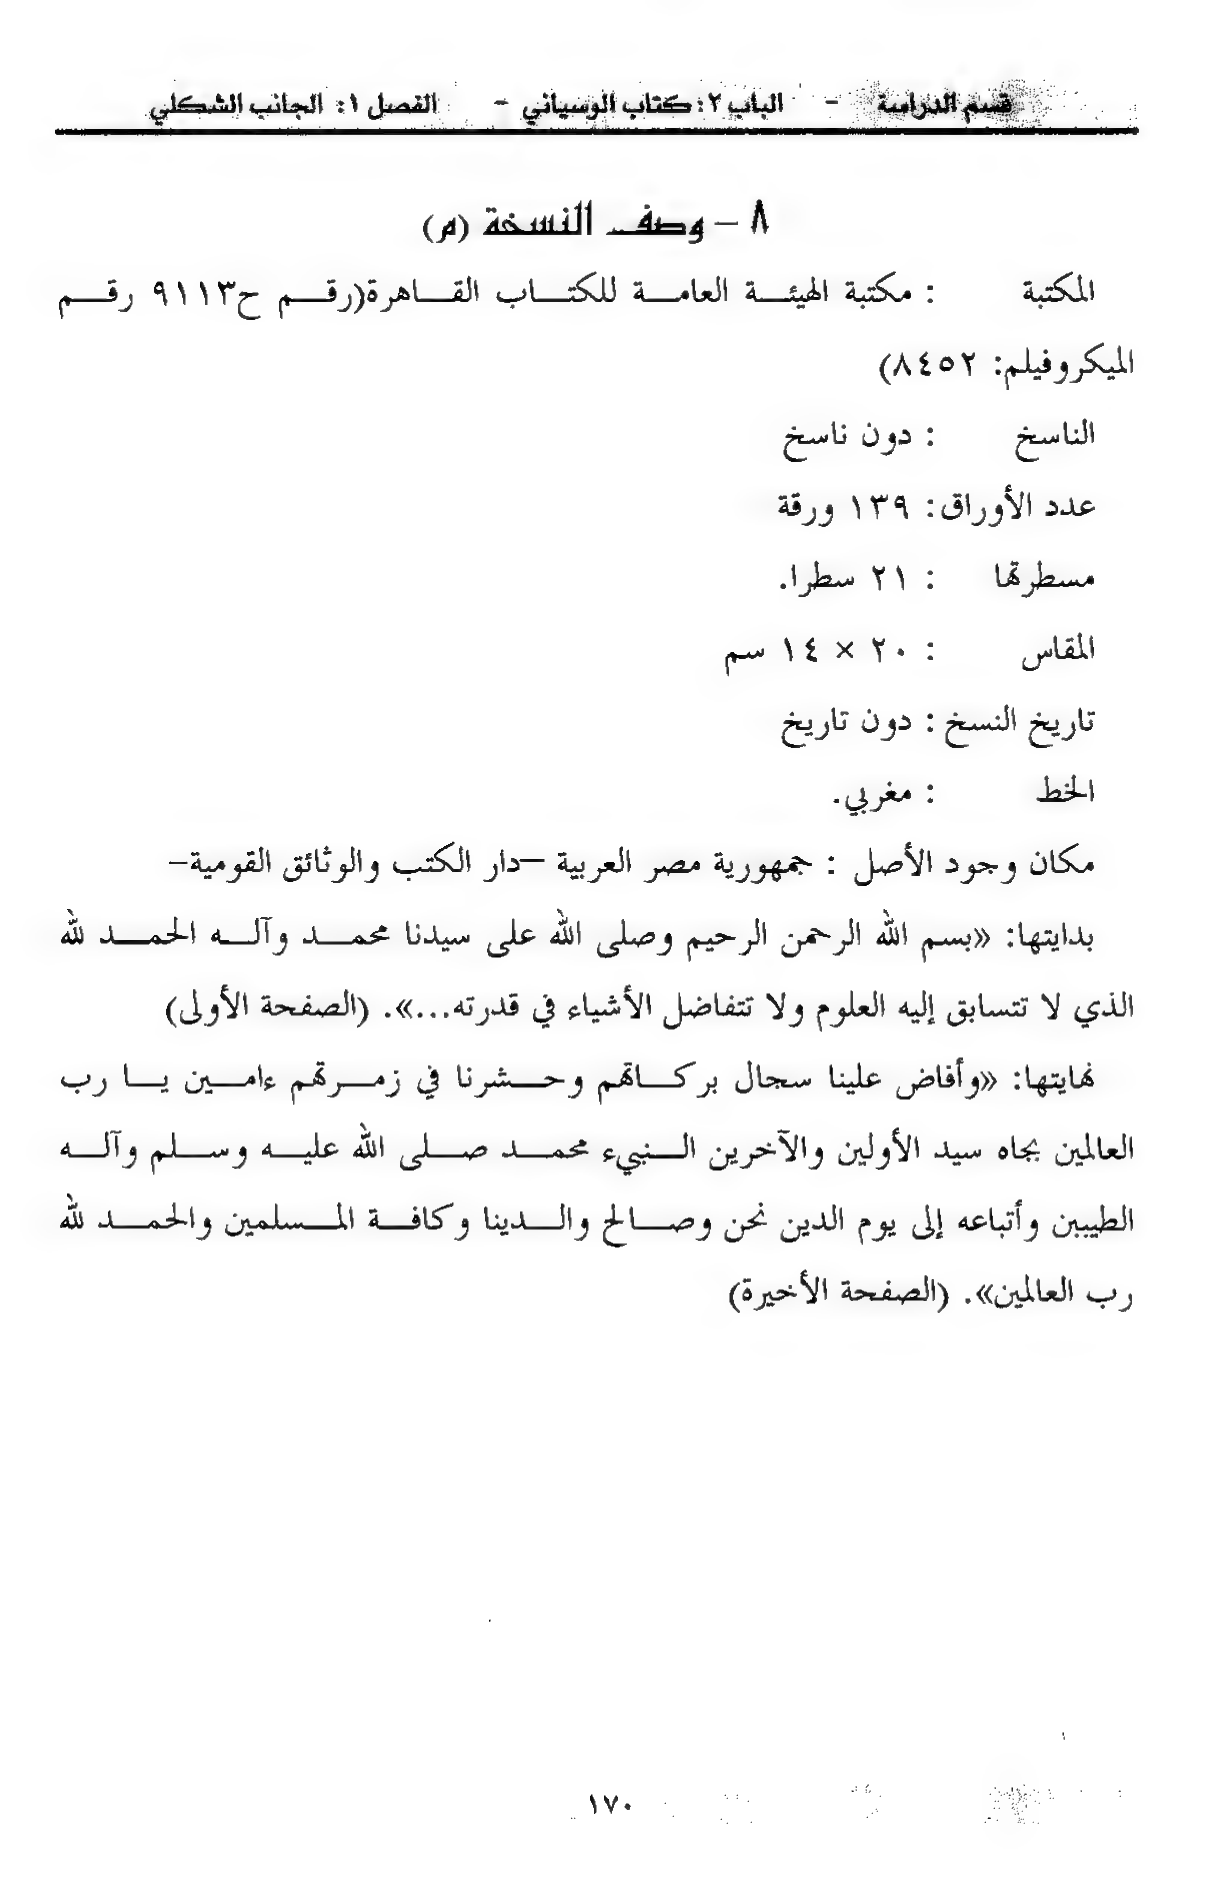 قسم الدراسة - الباب ٢: كتاب الوسياني - الفصل ١: الجانب الشكلي
٨ – وصف النسخة (م)
المكتبة : مكتبة الهيئة العامة للكتاب القاهرة(رقم ح٩١١٣ رقم
الميكروفيلم: ٨٤٥٢)
الناسخ : دون ناسخ
عدد الأوراق: ١٣٩ ورقة
مسطرتها : ٢١ سطرا.
المقاس : ٢٠ × ١٤ سم
تاريخ النسخ : دون تاريخ
الخط : مغربي.
مكان وجود الأصل : جمهورية مصر العربية –دار الكتب والوثائق القومية–
بدايتها: «بسم الله الرحمن الرحيم وصلى الله على سيدنا محمد وآله الحمد لله
الذي لا تتسابق إليه العلوم ولا تتفاضل الأشياء في قدرته...». (الصفحة الأولى)
نهايتها: «وأفاض علينا سجال بركاتهم وحشرنا في زمرتهم ءامين يا رب
العالمين بجاه سيد الأولين والآخرين النبيء محمد صلى الله عليه وسلم وآله
الطيبين وأتباعه إلى يوم الدين نحن وصالح والدينا وكافة المسلمين والحمد لله
رب العالمين». (الصفحة الأخيرة)
١٧٠